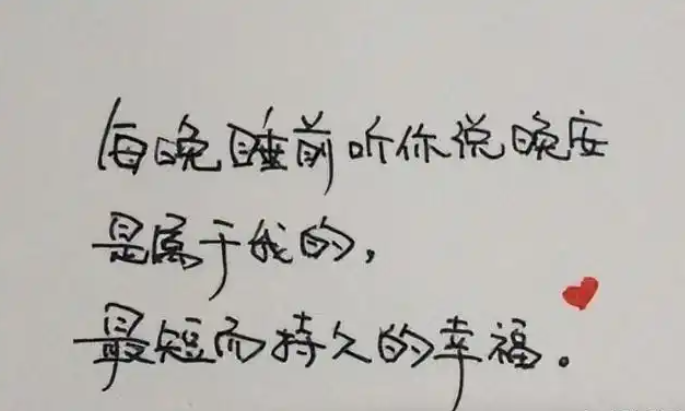 每晚睡前听你说晚安
是属于我的，
最短而持久的幸福。